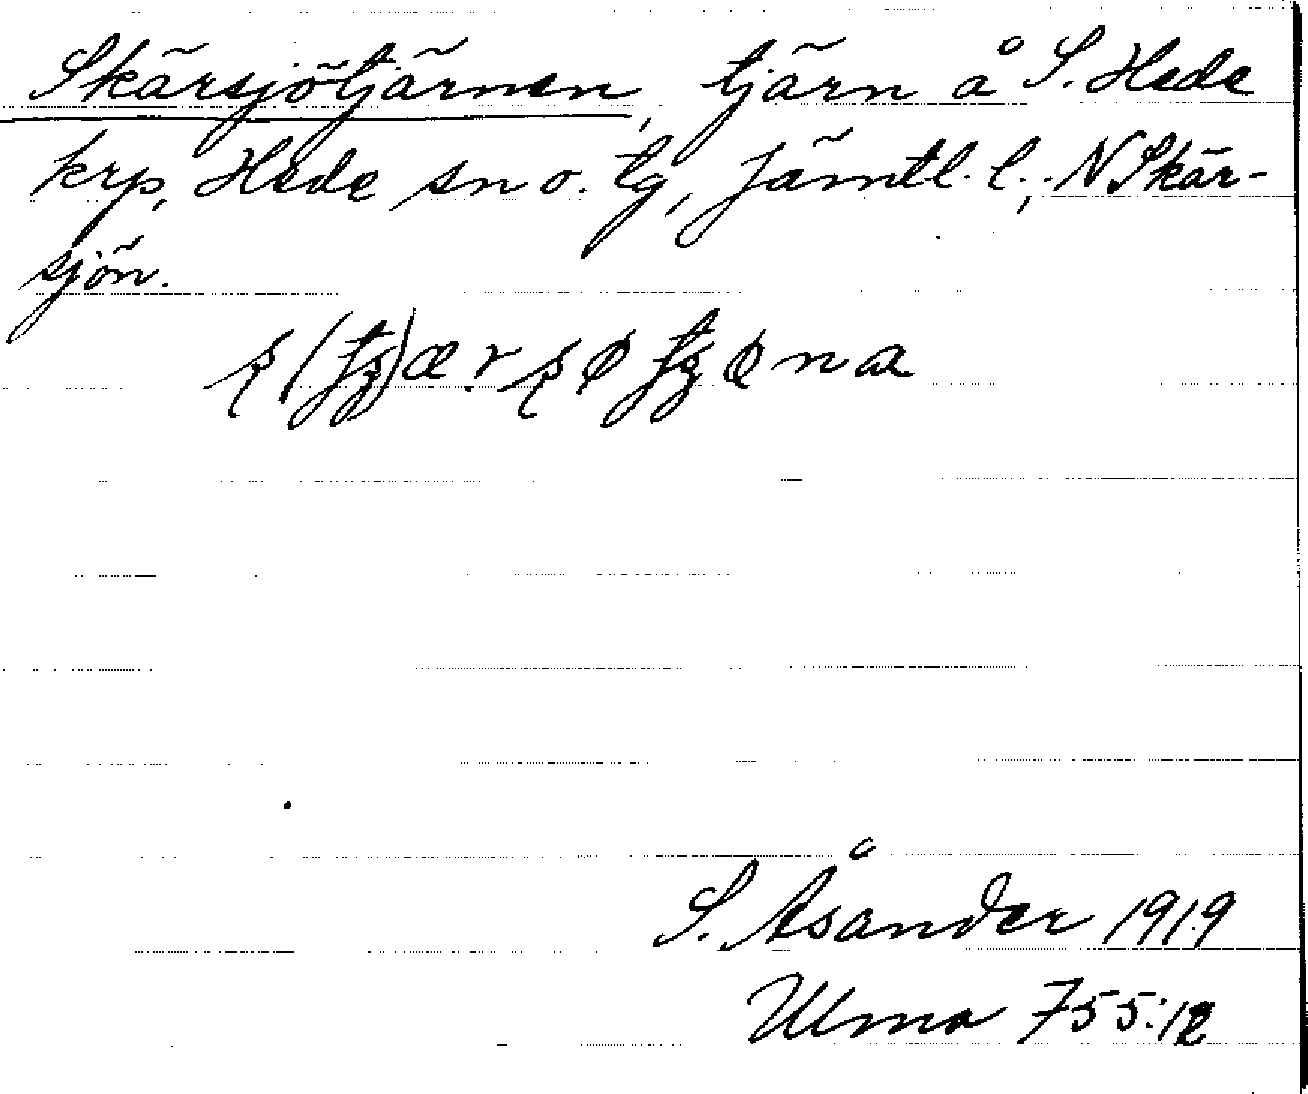 Skärsjötjärnen, tjärn å S. Hede
krp, Hede sn o. tg, Jämtl. l., N Skär-
sjön.
S. Åsander 1919
Ulma 755:12